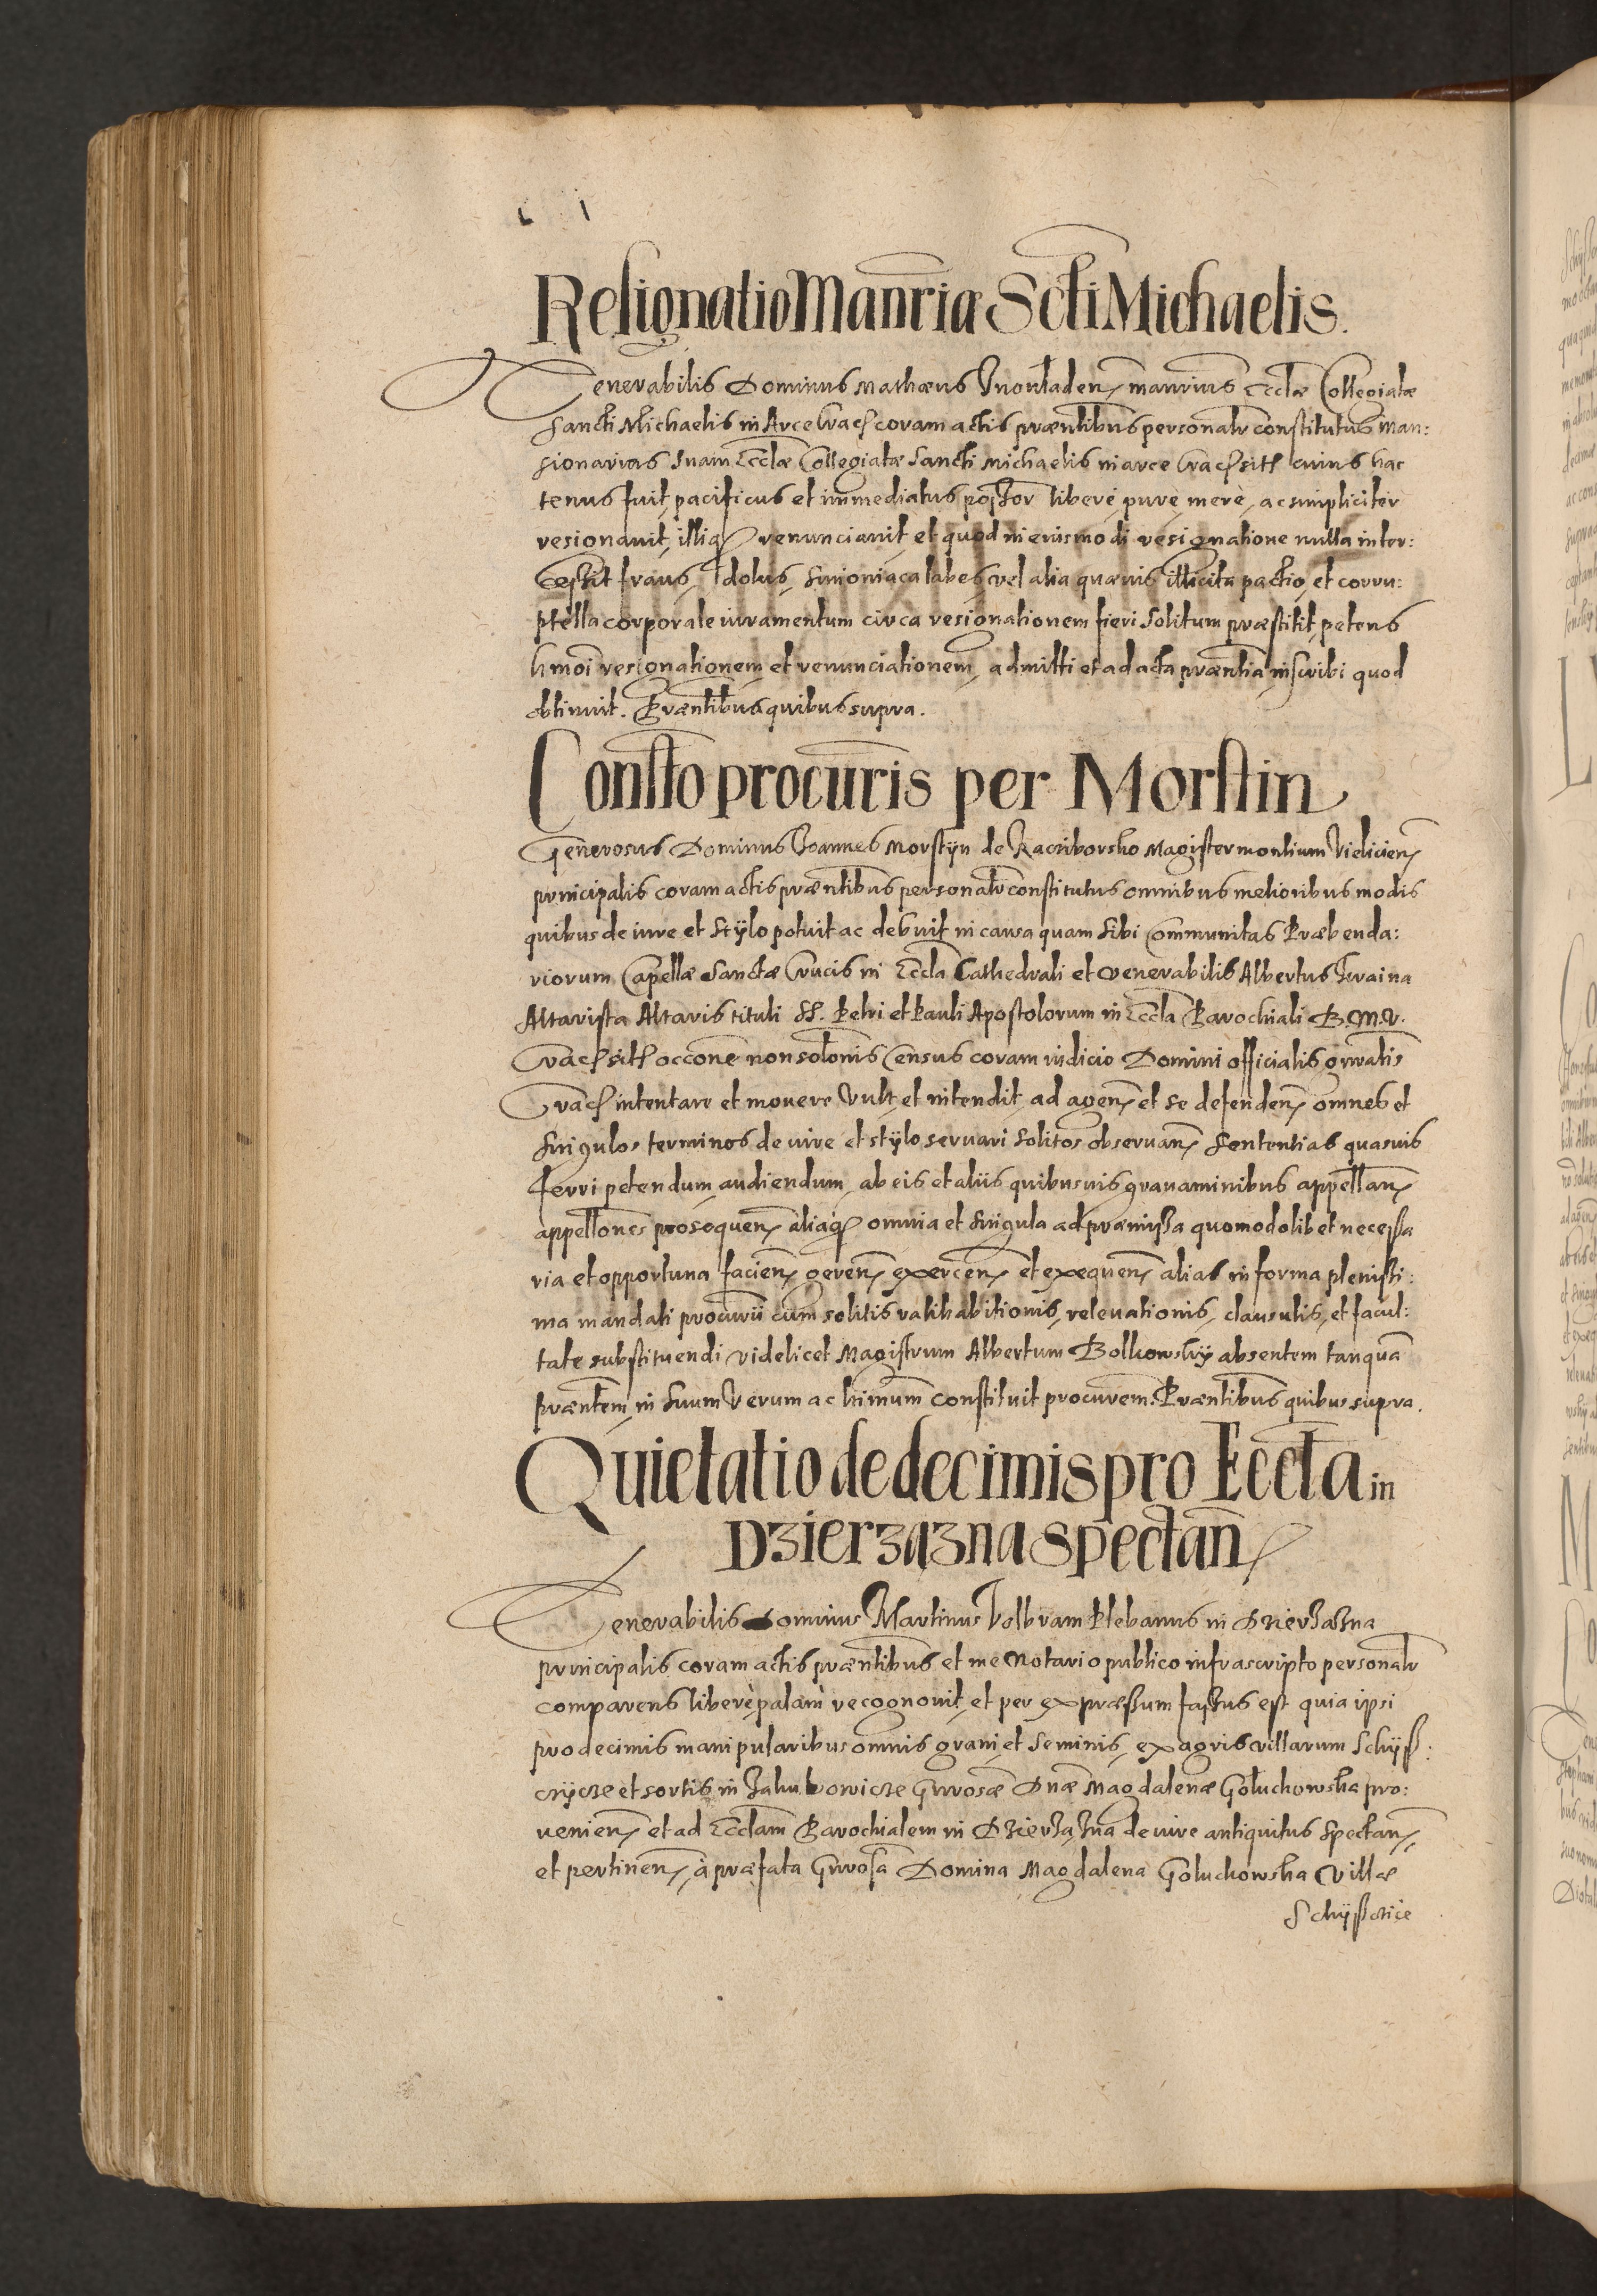 Resignatio Manriæ Scti Michaelis.
Venerabilis Dominus Mathæus Inouladen mansrius Ecclæ Collegiatæ
Sancti Michaelis in Arce Crac coram actis præntibus personalr constitutus Man:
sionariam suam Ecclæ Collegiatæ Sancti Michaelis in arce Crac sitæ cuius hac
tenus fuit, pacificus et immediatus possor liberè, purè, merè, ac simpliciter
resignauit, illiq renunciauit, et quod in eiusmodi resignatione nulla inter:
cessit fraus, dolus, simoniaca labes, vel alia quæuis illicita pactio, et corru:
ptella corporale iuramentum circa resignationem fieri solitum præstitit, petens
hmoi resignationem et renunciationem, admitti et ad acta præntia inscribi quod
obtinuit. Præntibus quibus supra.
Constto procuris per Morstin
Generosus Dominus Joannes Morstÿn de Raciborsko Magister montium Vielicien
principalis coram actis præntibus personalr constitutus omnibus melioribus modis
quibus de iure et stÿlo potuit ac debuit in causa quam sibi Communitas Præbenda:
riorum Capellæ Sanctæ Crucis in Eccla Cathedrali et venerabilis Albertus
Altarista Altaris tituli SS. Petri et Pauli Apostolorum in Eccla Parochiali B.M.V.
Crac sitæ occone non solonis Census coram iudicio Domini officialis gnralis
Crac intentare et mouere vult, et intendit, ad agen et se defenden omnes et
singulos terminos de iure et stÿlo seruari solitos obseruan sententias quasuis
ferri petendum, audiendum, ab eis et aliis quibusuis grauaminibus appellan
appellones prosequen aliaq omnia et singula ad præmissa quomodolibet necessa
ria et opportuna facien geren exercen et exequen alias in forma plenissi:
ma mandati procurii cum solitis ratihabitionis, releuationis, clausulis, et facul:
tate substituendi videlicet Magistrum Albertum Bolkowskÿ absentem tanquā
præntem, in suum verum ac ltimum constituit procurem. Præntibus quibus supra.
Quietatio de decimis pro Eccla in
Dzierzązna spectan
Venerabilis Dominus Martinus Volbram Plebanus in Dzierzązna
principalis coram actis præntibus et me Notario publico infrascripto personalr
comparens liberè palam recognouit, et per expræssum fassus est quia ipsi
pro decimis manipularibus omnis grani, et seminis, ex agris villarum Schÿss:
czÿcze et sortis in Jakubowicze Gnrosæ Dnæ Magdalenæ Gołuchowska pro:
uenien et ad Ecclam Parochialem in Dzierzązna de iure antiquitus spectan,
et pertinen, à præfata Gnrosa Domina Magdalena Goluchowska villæ
Schÿsczice